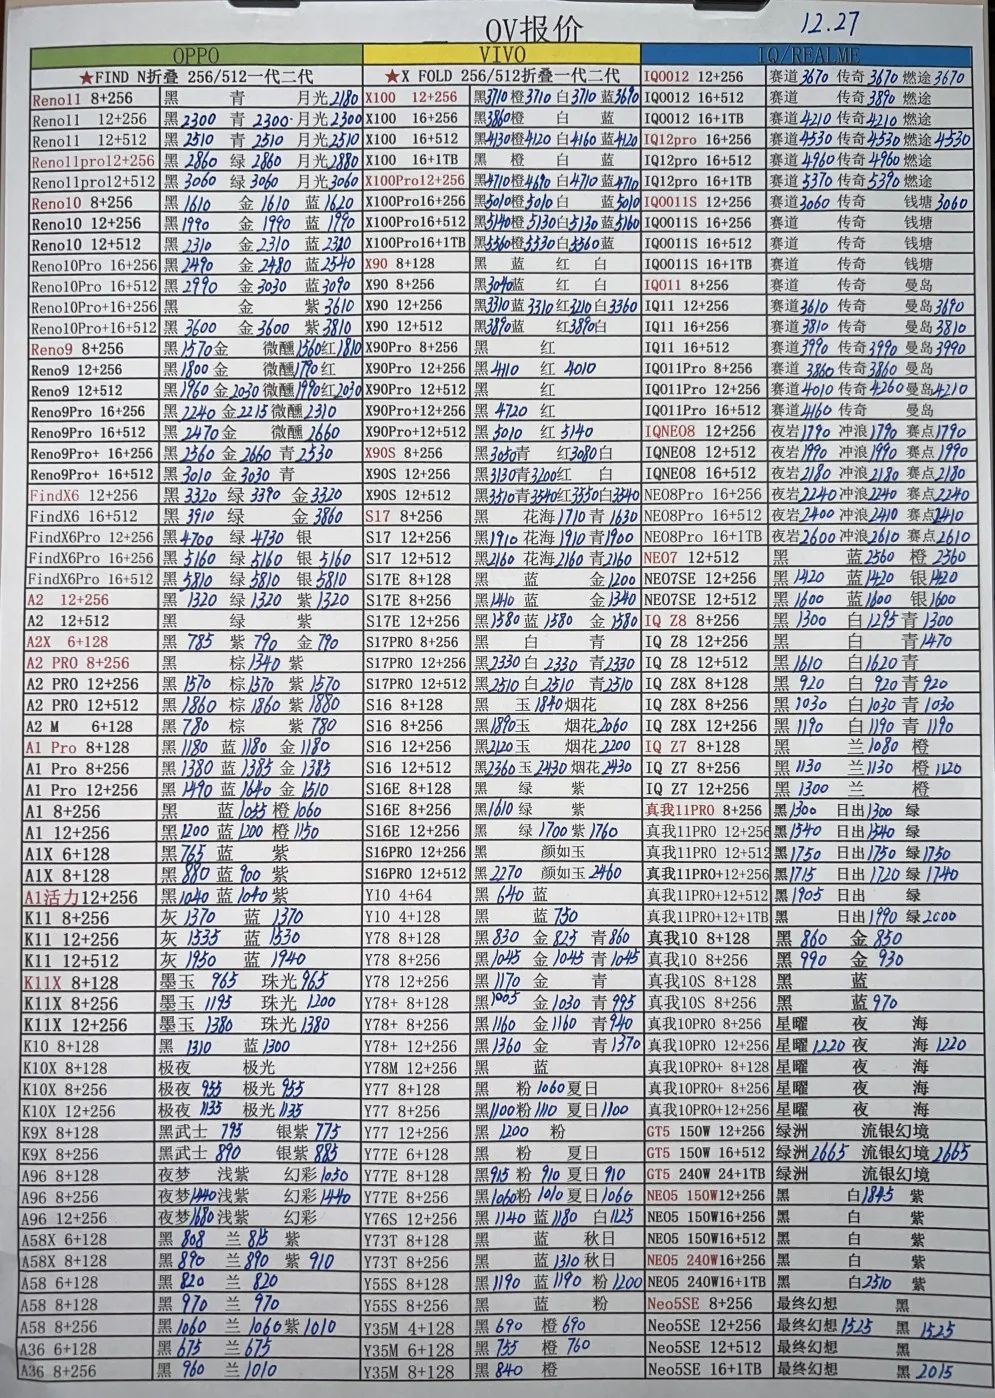 OV报价 12.27
OPPO VIVO IQ/REALME
★FIND N折叠 256/512一代二代 ★X FOLD 256/512折叠一代二代 IQOO12 12+256 赛道3670 传奇3670 燃途3670
Reno11 8+256 黑 青 月光2180 X100 12+256 黑3710橙3710白3710蓝3690 IQOO12 16+512 赛道 传奇3890 燃途
Reno11 12+256 黑2300 青2300 月光2300 X100 16+256 黑3860橙 白 蓝 IQOO12 16+1TB 赛道4210传奇4210燃途
Reno11 12+512 黑2510 青2510 月光2510 X100 16+512 黑4130橙4120白4160蓝4120 IQ12pro 16+256 赛道4530传奇4530燃途4530
Reno11pro12+256 黑2860 绿2860 月光2880 X100 16+1TB 黑 橙 白 蓝 IQ12pro 16+512 赛道4960传奇4960燃途
Reno11pro12+512 黑3060 绿3060 月光3060 X100Pro12+256 黑4710橙4690白4710蓝4710 IQ12pro 16+1TB 赛道5370传奇5390燃途
Reno10 8+256 黑1610 金1610 蓝1620 X100Pro16+256 黑5010橙5010白 蓝5010 IQOO11S 12+256 赛道3060 传奇 钱塘3060
Reno10 12+256 黑1990 金1990 蓝1990 X100Pro16+512 黑5140橙5130白5130蓝5160 IQOO11S 16+256 赛道 传奇 钱塘
Reno10 12+512 黑2310 金2310 蓝2320 X100Pro16+1TB 黑5560橙5530白5560蓝 IQOO11S 16+512 赛道 传奇 钱塘
Reno10Pro 16+256 黑2490 金2480 蓝2540 X90 8+128 黑 蓝 红 白 IQOO11S 16+1TB 赛道 传奇 钱塘
Reno10Pro 16+512 黑2990 金3030 蓝3090 X90 8+256 黑3040蓝 红 白 IQO11 8+256 赛道 传奇 曼岛
Reno10Pro+16+256 黑 金 紫3610 X90 12+256 黑3310蓝3310红3210白3360 IQ11 12+256 赛道3610传奇 曼岛3690
Reno10Pro+16+512 黑3600 金3600 紫3810 X90 12+512 黑3890蓝 红3890白 IQ11 16+256 赛道3810传奇 曼岛3810
Reno9 8+256 黑1570金 微醺1560红1810 X90Pro 8+256 黑 红 IQ11 16+512 赛道3990传奇3990曼岛3990
Reno9 12+256 黑1800金 微醺1790红 X90Pro 12+256 黑4410 红4010 IQO11Pro 8+256 赛道3860传奇3860曼岛
Reno9 12+512 黑1960金2030微醺1990红2030 X90Pro 12+512 黑 红 IQO11Pro 12+256 赛道4010传奇4260曼岛4210
Reno9Pro 16+256 黑2240金2215微醺2310 X90Pro+12+256 黑4720 红 IQO11Pro 16+512 赛道4160传奇 曼岛
Reno9Pro 16+512 黑2470金 微醺2660 X90Pro+12+512 黑5010 红5140 IQNEO8 12+256 夜岩1790冲浪1790赛点1790
Reno9Pro+ 16+256 黑2560金2660青2530 X90S 8+256 黑3050青 红3080白 IQNEO8 12+512 夜岩1990冲浪1990赛点1990
Reno9Pro+ 16+512 黑3010金3030青 X90S 12+256 黑3130青3200红 白 IQNEO8 16+512 夜岩2180冲浪2180赛点2180
FindX6 12+256 黑3320 绿3390 金3320 X90S 12+512 黑3510青3540红3550白3540 NEO8Pro 16+256 夜岩2240冲浪2240赛点2240
FindX6 16+512 黑3910 绿 金3860 S17 8+256 黑 花海1710青1630 NEO8Pro 16+512 夜岩2400冲浪2410赛点2410
FindX6Pro 12+256 黑4700 绿4730 银 S17 12+256 黑1910花海1910青1900 NEO8Pro 16+1TB 夜岩2600冲浪2610赛点2610
FindX6Pro 16+256 黑5160 绿5160 银5160 S17 12+512 黑2160花海2160青2160 NEO7 12+512 黑 蓝2560 橙2560
FindX6Pro 16+512 黑5810 绿5810 银5810 S17E 8+128 黑 蓝 金1200 NEO7SE 12+256 黑1420 蓝1420 银1420
A2 12+256 黑1320 绿1320 紫1320 S17E 8+256 黑1410 蓝 金1340 NEO7SE 12+512 黑1600 蓝1600 银1600
A2 12+512 黑 绿 紫 S17E 12+256 黑1580蓝1580 金1580 IQ Z8 8+256 黑1300 白1295青1300
A2X 6+128 黑785 紫790 金790 S17PRO 8+256 黑 白 青 IQ Z8 12+256 黑 白 青1470
A2 PRO 8+256 黑 棕1340 紫 S17PRO 12+256 黑2330白2330青2330 IQ Z8 12+512 黑1610 白1620青
A2 PRO 12+256 黑1570 棕1570 紫1570 S17PRO 12+512 黑2510白2510青2510 IQ Z8X 8+128 黑920 白920青920
A2 PRO 12+512 黑1860 棕1860 紫1880 S16 8+128 黑 玉1840烟花 IQ Z8X 8+256 黑1030 白1030青1030
A2 M 6+128 黑780 棕 紫780 S16 8+256 黑1890玉 烟花2060 IQ Z8X 12+256 黑1190 白1190青1190
A1 Pro 8+128 黑1180 蓝1180 金1180 S16 12+256 黑2120玉 烟花2200 IQ Z7 8+128 黑 兰1080 橙
A1 Pro 8+256 黑1380 蓝1385 金1385 S16 12+512 黑2360玉2430烟花2430 IQ Z7 8+256 黑1130 兰1130 橙1120
A1 Pro 12+256 黑1490 蓝1640 金1510 S16E 8+128 黑 绿 紫 IQ Z7 12+256 黑1300 兰 橙
A1 8+256 黑 蓝1055橙1060 S16E 8+256 黑1610绿 紫 真我11PRO 8+256 黑1300 日出1300 绿
A1 12+256 黑1200蓝1200橙1150 S16E 12+256 黑 绿1700紫1760 真我11PRO 12+256 黑1540 日出1540 绿
A1X 6+128 黑765蓝 紫 S16PRO 12+256 黑 颜如玉 真我11PRO 12+512 黑1750 日出1750 绿1750
A1X 8+128 黑880蓝900紫 S16PRO 12+512 黑2270 颜如玉2460 真我11PRO+12+256 黑1715 日出1720 绿1740
A1活力12+256 黑1040蓝1040紫 Y10 4+64 黑640蓝 真我11PRO+12+512 黑1905 日出 绿
K11 8+256 灰1370 蓝1370 Y10 4+128 黑 蓝750 真我11PRO+12+1TB 黑 日出1990绿2000
K11 12+256 灰1535 蓝1530 Y78 8+128 黑830 金825 青860 真我10 8+128 黑860 金850
K11 12+512 灰1950 蓝1940 Y78 8+256 黑1045 金1045青1045 真我10 8+256 黑990 金930
K11X 8+128 墨玉965 珠光965 Y78 12+256 黑1170 金 青 真我10S 8+128 黑 蓝
K11X 8+256 墨玉1195 珠光1200 Y78+ 8+128 黑1005 金1030青995 真我10S 8+256 黑 蓝970
K11X 12+256 墨玉1380 珠光1380 Y78+ 8+256 黑1160 金1160 青940 真我10PRO 8+256 星曜 夜 海
K10 8+128 黑1310 蓝1300 Y78+ 12+256 黑1360 金 青1370 真我10PRO 12+256 星曜1220夜 海1220
K10X 8+128 极夜 极光 Y78M 12+256 黑 蓝 真我10PRO+ 8+128 星曜 夜 海
K10X 8+256 极夜955 极光955 Y77 8+128 黑 粉1060夏日 真我10PRO+ 8+256 星曜 夜 海
K10X 12+256 极夜1135 极光1135 Y77 8+256 黑1100粉1110夏日1100 真我10PRO+12+256 星曜 夜 海
K9X 8+128 黑武士795 银紫775 Y77 12+256 黑1200 粉 GT5 150W 12+256 绿洲 流银幻境
K9X 8+256 黑武士890 银紫885 Y77E 6+128 黑 粉 夏日 GT5 150W 16+512 绿洲2665 流银幻境2665
A96 8+128 夜梦 浅紫 幻彩1050 Y77E 8+128 黑915粉910夏日910 GT5 240W 24+1TB 绿洲 流银幻境
A96 8+256 夜梦1440浅紫 幻彩1440 Y77E 8+256 黑1060粉1010夏日1060 NEO5 150W12+256 黑 白1845 紫
A96 12+256 夜梦1680浅紫 幻彩 Y76S 12+256 黑1140蓝1180白1125 NEO5 150W16+256 黑 白 紫
A58X 6+128 黑808 兰815 紫 Y73T 8+128 黑 蓝 秋日 NEO5 150W16+512 黑 白 紫
A58X 8+128 黑890 兰890 紫910 Y73T 8+256 黑 蓝1310秋日 NEO5 240W16+256 黑 白 紫
A58 6+128 黑820 兰820 Y55S 8+128 黑1190 蓝1190粉1200 NEO5 240W16+1TB 黑 白2510 紫
A58 8+128 黑970 兰970 Y55S 8+256 黑 蓝 粉 Neo5SE 8+256 最终幻想 黑
A58 8+256 黑1060 兰1060紫1010 Y35M 4+128 黑690 橙690 Neo5SE 12+256 最终幻想1525 黑1525
A36 6+128 黑675 兰675 Y35M 6+128 黑755 橙760 Neo5SE 12+512 最终幻想 黑
A36 8+256 黑960 兰1010 Y35M 8+128 黑840 橙 Neo5SE 16+1TB 最终幻想 黑2015